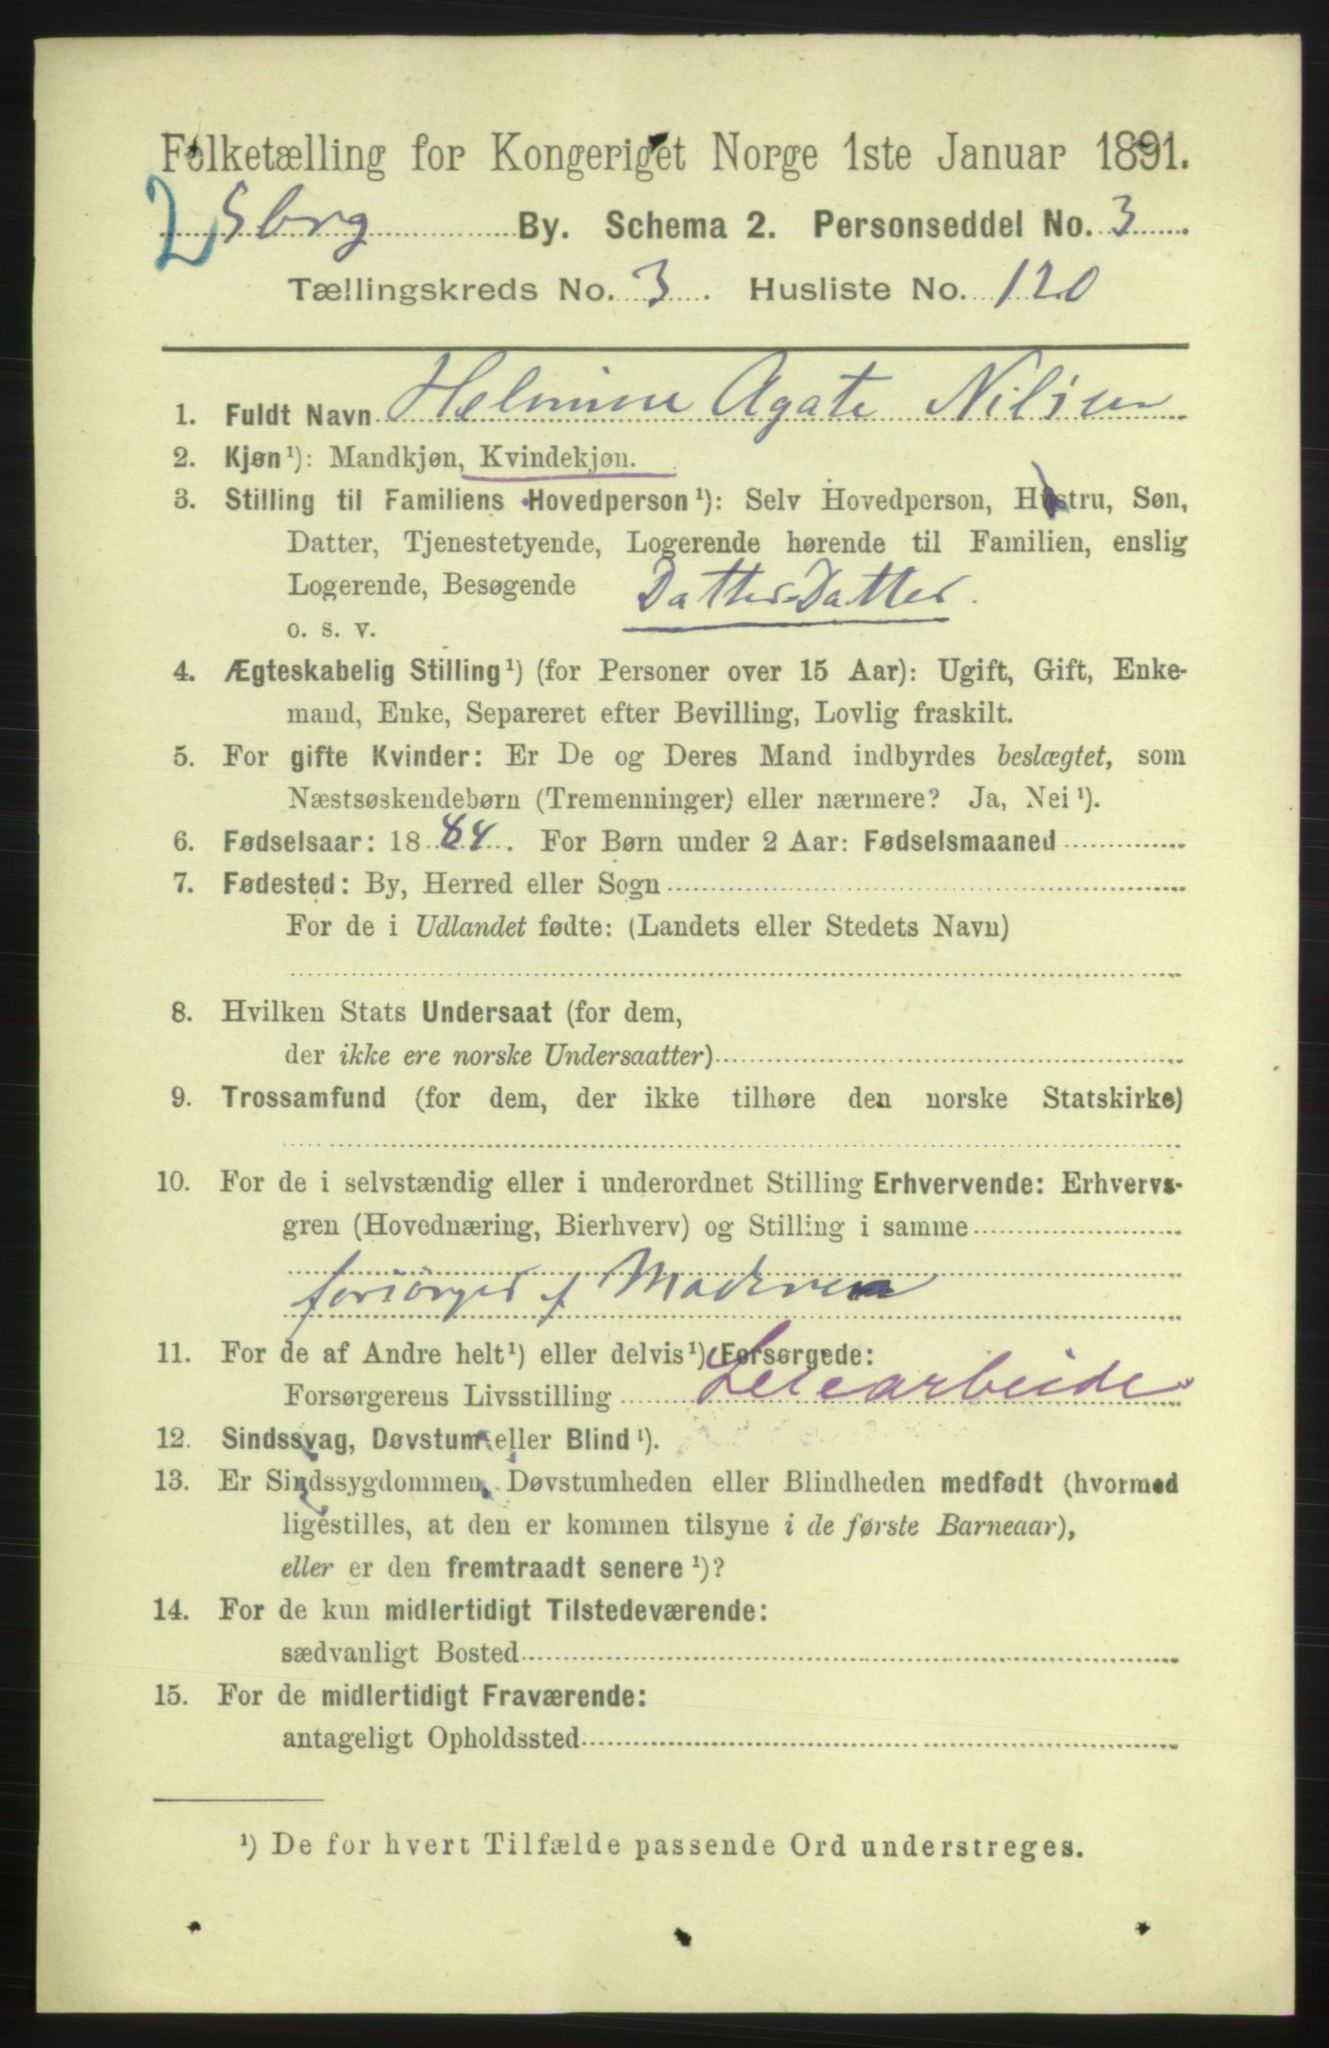 Folketælling for Kongeriget Norge 1ste Januar 1891.
2 Sbrg By. Schema 2. Personseddel No. 3
Tællingskreds No. 3. Husliste No. 120
1. Fuldt Navn Helmine Agate Nilsen
2. Kjøn ¹): Mandkjøn, Kvindekjøn.
3. Stilling til Familiens Hovedperson ¹): Selv Hovedperson, Hustru, Søn,
Datter, Tjenestetyende, Logerende hørende til Familien, enslig
Logerende, Besøgende Datter-Datter.
o. s. v.
4. Ægteskabelig Stilling ¹) (for Personer over 15 Aar): Ugift, Gift, Enke-
mand, Enke, Separeret efter Bevilling, Lovlig fraskilt.
5. For gifte Kvinder: Er De og Deres Mand indbyrdes beslægtet, som
Næstsøskendebørn (Tremenninger) eller nærmere? Ja, Nei ¹).
6. Fødselsaar: 1884. For Børn under 2 Aar: Fødselsmaaned
7. Fødested: By, Herred eller Sogn
For de i Udlandet fødte: (Landets eller Stedets Navn)
8. Hvilken Stats Undersaat (for dem,
der ikke ere norske Undersaatter)
9. Trossamfund (for dem, der ikke tilhøre den norske Statskirke)
10. For de i selvstændig eller i underordnet Stilling Erhvervende: Erhvervs-
gren (Hovednæring, Bierhverv) og Stilling i samme
forsørges af Moderen
11. For de af Andre helt ¹) eller delvis ¹) Forsørgede:
Forsørgerens Livsstilling Leiearbeide
12. Sindssvag, Døvstum eller Blind ¹).
13. Er Sindssygdommen, Døvstumheden eller Blindheden medfødt (hvormed
ligestilles, at den er kommen tilsyne i de første Barneaar),
eller er den fremtraadt senere ¹)?
14. For de kun midlertidigt Tilstedeværende:
sædvanligt Bosted
15. For de midlertidigt Fraværende:
antageligt Opholdssted
¹) De for hvert Tilfælde passende Ord understreges.